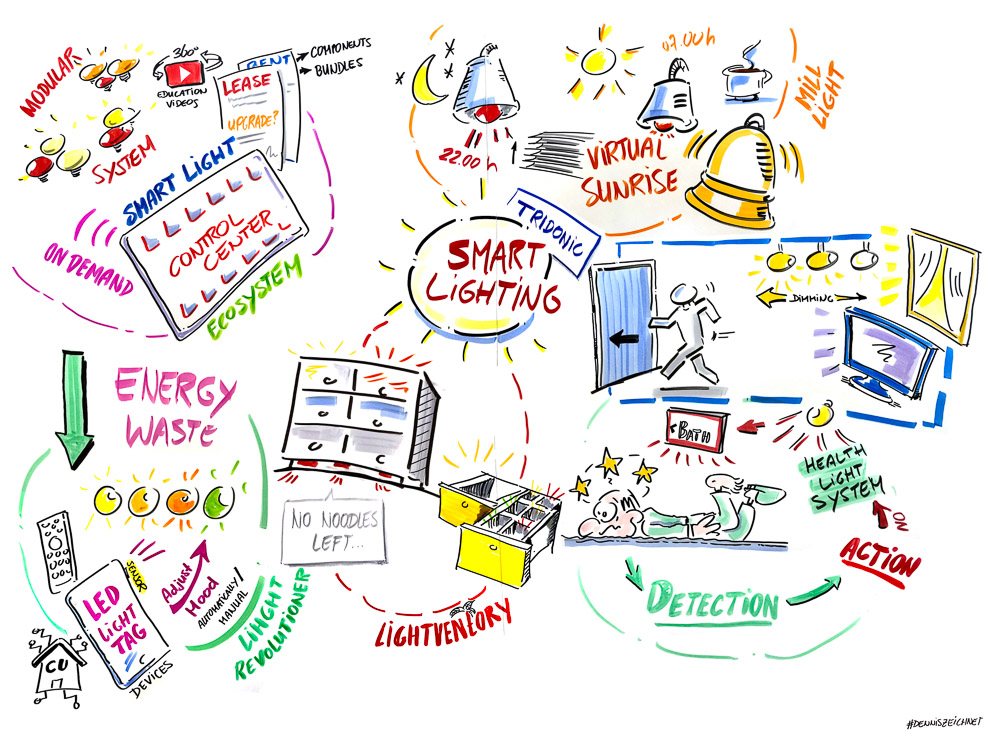 MODULAR
SYSTEM
360°
EDUCATION
VIDEOS
RENT
LEASE
UPGRADE?
COMPONENTS
BUNDLES
SMART LIGHT
CONTROL
CENTER
ECOSYSTEM
ON DEMAND
22.00 h
07.00h
MILL
LIGHT
VIRTUAL
SUNRISE
TRIDONIC
SMART
LIGHTING
DIMMING
ENERGY
WASTE
LED
LIGHT
TAG
SENSOR
DEVICES
CU
Adjust
Mood
AUTOMATICALLY/
MANUAL
LiHGHT
REVOLUTIONER
NO NOODLES
LEFT...
LIGHTVENTORY
<BATH
HEALTH
LIGHT
SYSTEM
NO
ACTION
DETECTION
#DENNISZEICHNET